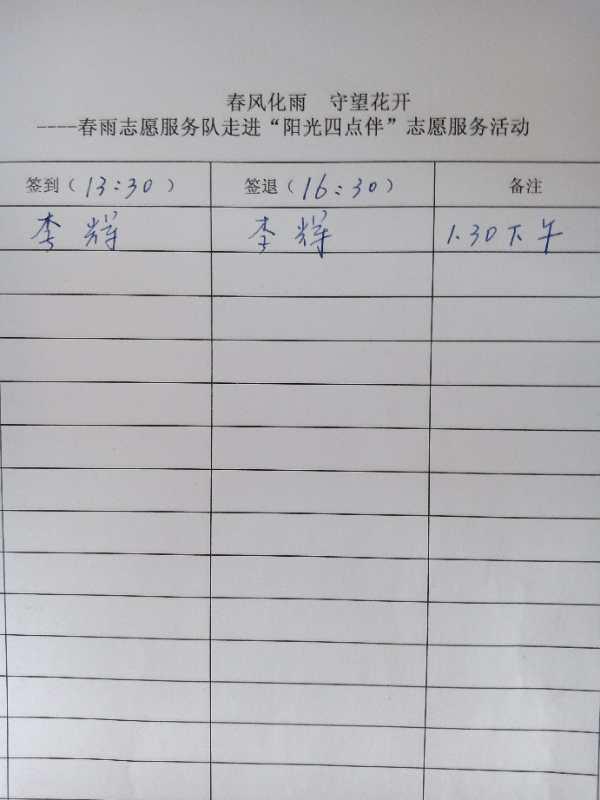 春风化雨 守望花开
----春雨志愿服务队走进“阳光四点伴”志愿服务活动
签到(13:30) 签退(16:30) 备注
李辉 李辉 1.30下午